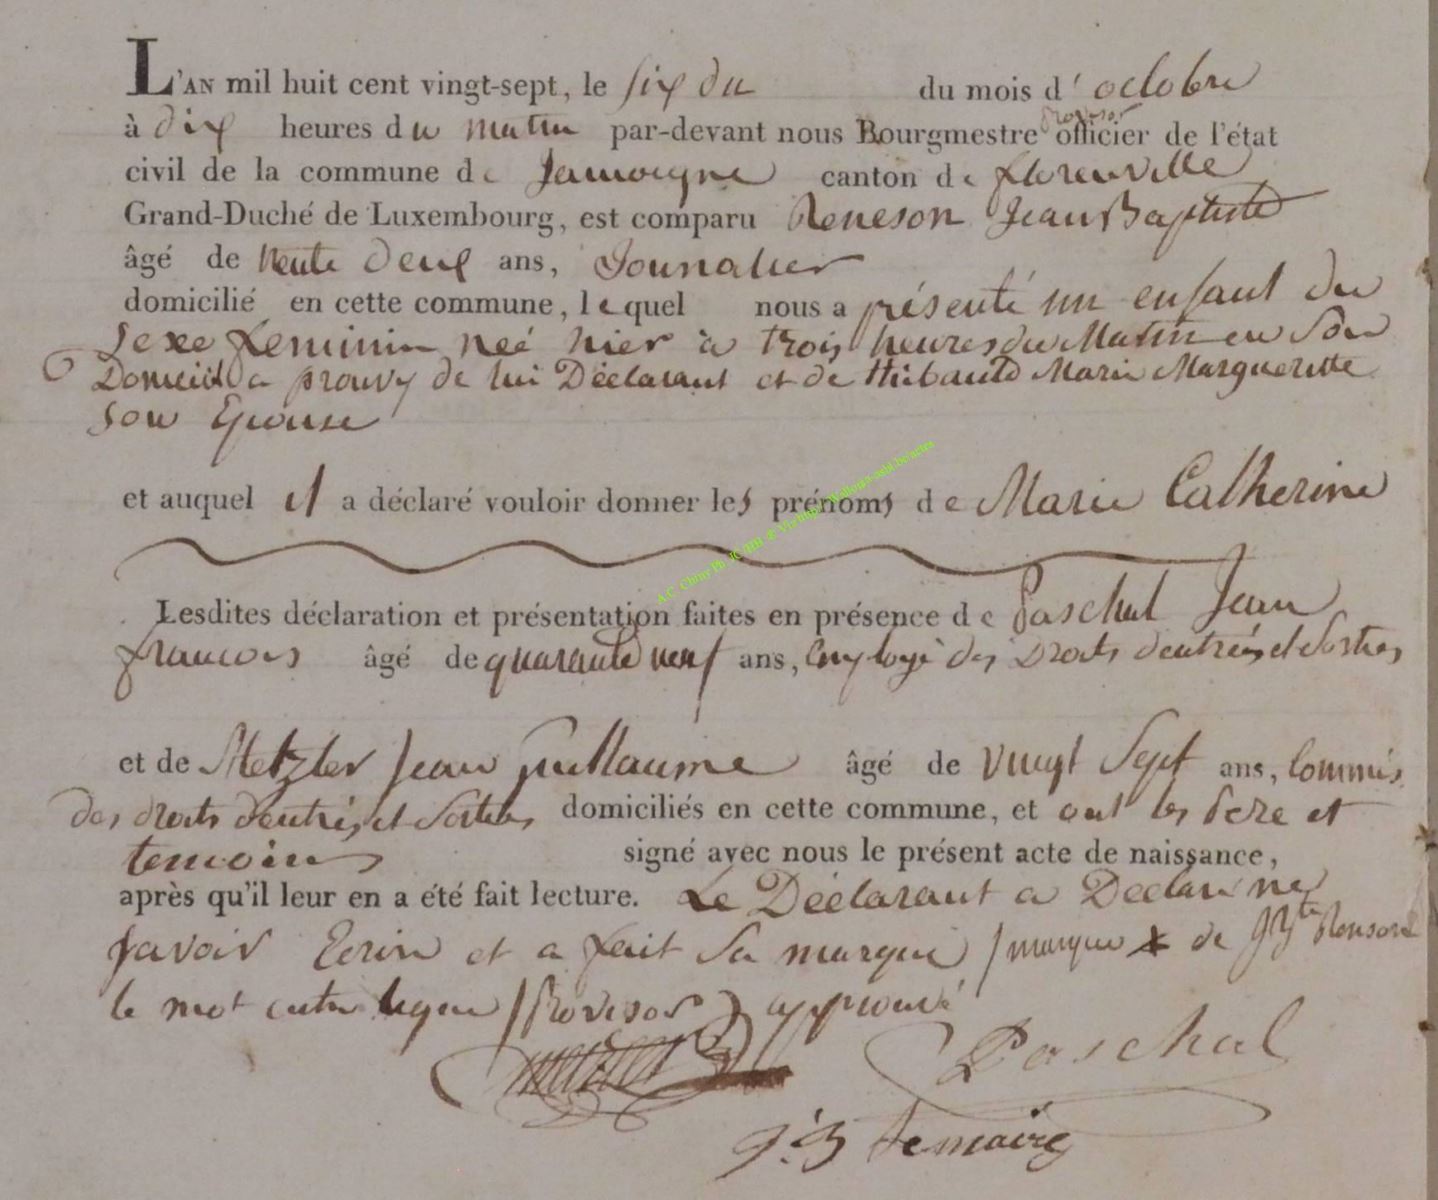 L'AN mil huit cent vingt-sept, le six du du mois d'octobre
à dix heures du matin par-devant nous Bourgmestre provisor officier de l'état
civil de la commune de Jamoigne canton de florenville
Grand-Duché de Luxembourg, est comparu Reneson Jean Baptiste
âgé de trente deux ans, Journalier
domicilié en cette commune, lequel nous a présenté un enfant du
sexe feminin neé hier à trois heures du Matin en son
Domicil a prouvy de lui Déclarant et de thibautd Marie Margueritte
son Epouse
et auquel il a déclaré vouloir donner les prénoms de Marie Catherine
A.C. Chiny Ph. JC HH @ Vierlingen Wallonia-asbl.be/actes
Lesdites déclaration et présentation faites en présence de Paschal Jean
francois âgé de quarante neuf ans, Employé des Droits d'entrées et Sorties
et de Metzler Jean Guillaume âgé de vingt Sept ans, Commis
des droits d'entrés et Sorties domiciliés en cette commune, et ont les Pere et
temoins signé avec nous le présent acte de naissance,
après qu'il leur en a été fait lecture. Le Déclarant a Declaré ne
savoir Ecrire et a fait sa marque / marque x de JBte Renson
le mot entre ligne / Provisor / approuvé
Metzler Paschal
J:B Lemaire